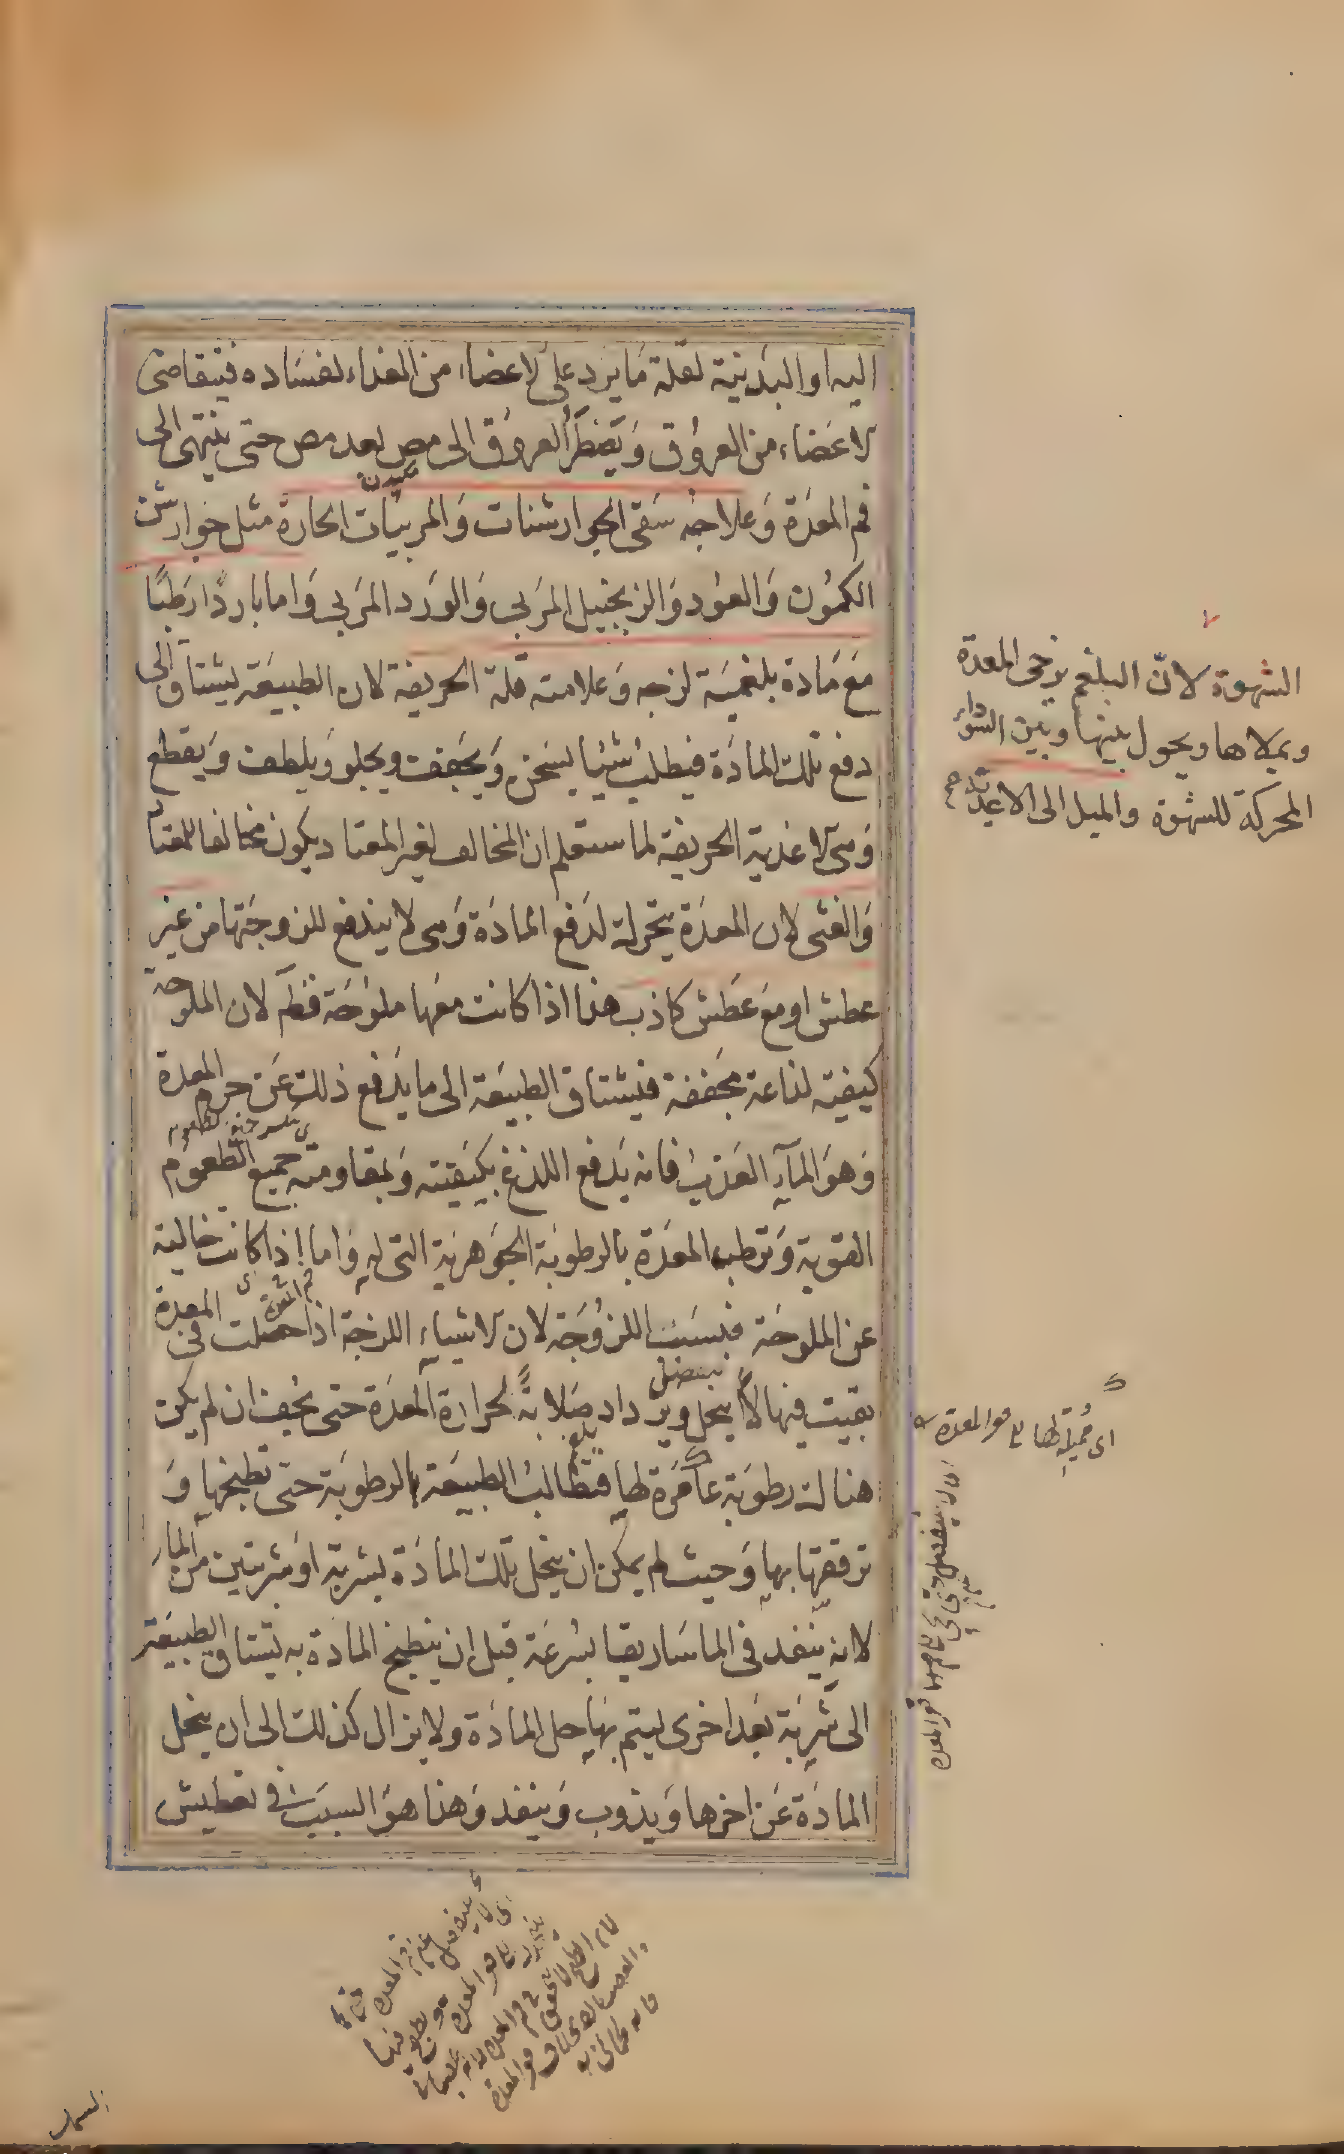 اليه او البدنية لقلة ما يرد على الاعضاء من الغذاء لفساده فيتقاضى
الاعضاء من العروق و يضطر العروق الى مص بعد مص حتى ينتهى الى
فم المعدة و علاجه سقى الجوارشنات و المربيات الحارة مثل جوارشن
الكمون و العود و الزنجبيل المربى و الورد المربى و اما باردا رطبا
مع مادة بلغمية لزجه و علامته قلة الحريفة لان الطبيعة يشتاق الى
دفع تلك المادة فيطلب شيئا يسخن و يجفف و يجلو و يلطف و يقطع
و هى الاغذية الحريفة لما ستعلم ان المخالف لغير المعتاد يكون مخالفا للمعتاد
و الغثى لان المعدة يتحرك لدفع المادة و هى لا يندفع للزوجتها من غير
عطش او مع عطش كاذب هذا اذا كانت معها ملوحة فطم لان الملوحة
كيفية لذاعة مجففة فيشتاق الطبيعة الى ما يدفع ذلك عن جرم المعدة
و هو الماء العذب فانه يدفع اللذع بكيفيته و بمقاومته جميع الطعوم
القوية و ترطب المعدة بالرطوبة الجوهرية التى له و اما اذا كانت خالية
عن الملوحة فبسبب اللزوجة لان الاشياء اللزجة اذا حصلت فى المعدة
بقيت فيها لا ينحل و يزداد صلابة لحرارة المعدة حتى يجف ان لم يكن
هناك رطوبة غامرة لها فتطالب الطبيعة بالرطوبة حتى تطبخها و
ترققها بها و حيث لم يمكن ان ينحل تلك المادة بشربة او شربتين من الماء
لانه ينفذ فى الماساريقا بسرعة قبل ان ينطبخ المادة به يشتاق الطبيعة
الى شربة بعد اخرى ليتم بها حل المادة و لا يزال كذلك الى ان ينحل
المادة عن اخرها و يذوب و ينفذ و هذا هو السبب فى تعطيش
الشهوة لانّ البلغم يرخى المعدة
و يملاها و يحول بينها و بين السوداء
المحركة للشهوة و الميل الى الاغذية صح